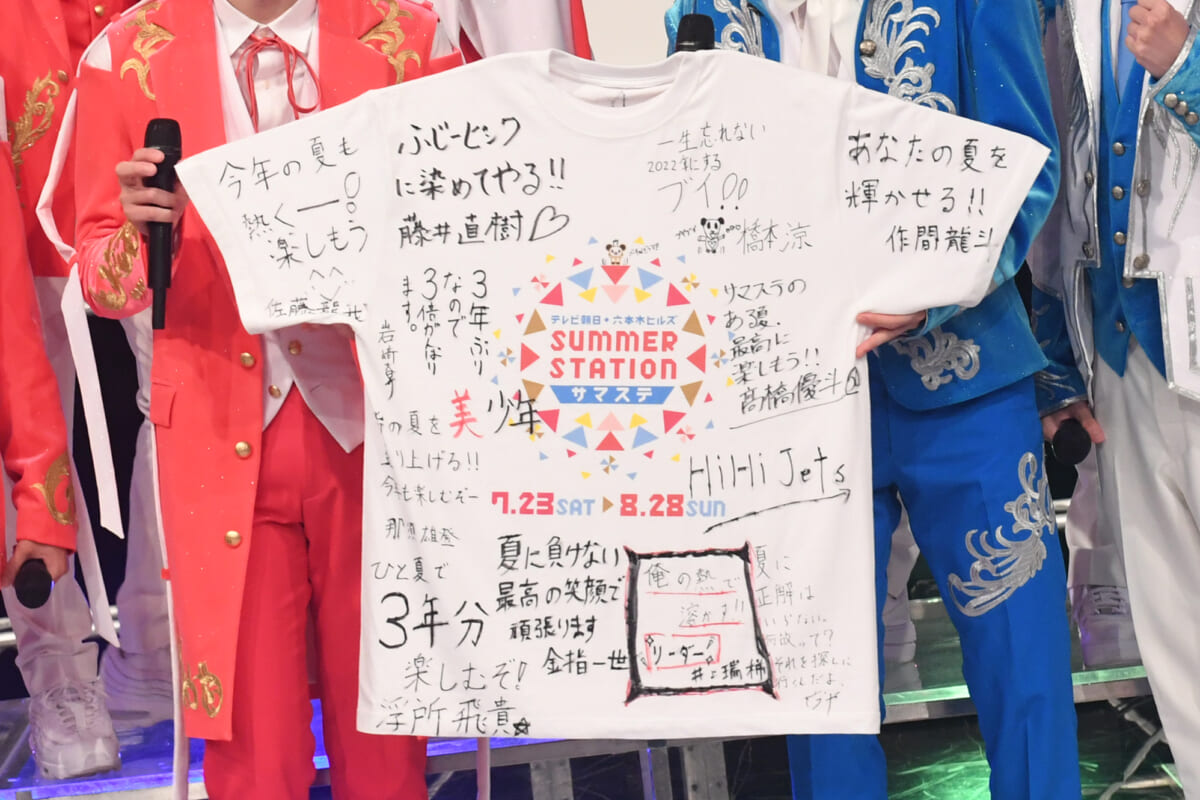 今年の夏も
熱くー!!
楽しもう
佐藤龍我
ふじーピンク
に染めてやる!!
藤井直樹♡
一生忘れない
2022年にする
ブイ!!
橋本涼
あなたの夏を
輝かせる!!
作間龍斗
3年ぶり
なので
3倍がなり
ます。
岩﨑
テレビ朝日・六本木ヒルズ
SUMMER
STATION
サマステ
サマステの
ある夏、
最高に
楽しもう!!
髙橋優斗
の夏を美 少年
り上げる!!
今年も楽しむぞー
那須雄登
HiHi Jets
7.23SAT▶8.28SUN
ひと夏で
3年分
楽しむぞ!
浮所飛貴
夏に負けない
最高の笑顔で
頑張ります
金指一世
俺の熱で
溶かす!!
リーダー
井上瑞稀
夏に
正解は
いらない。
何故って?
それを探しに
行くんだよ。